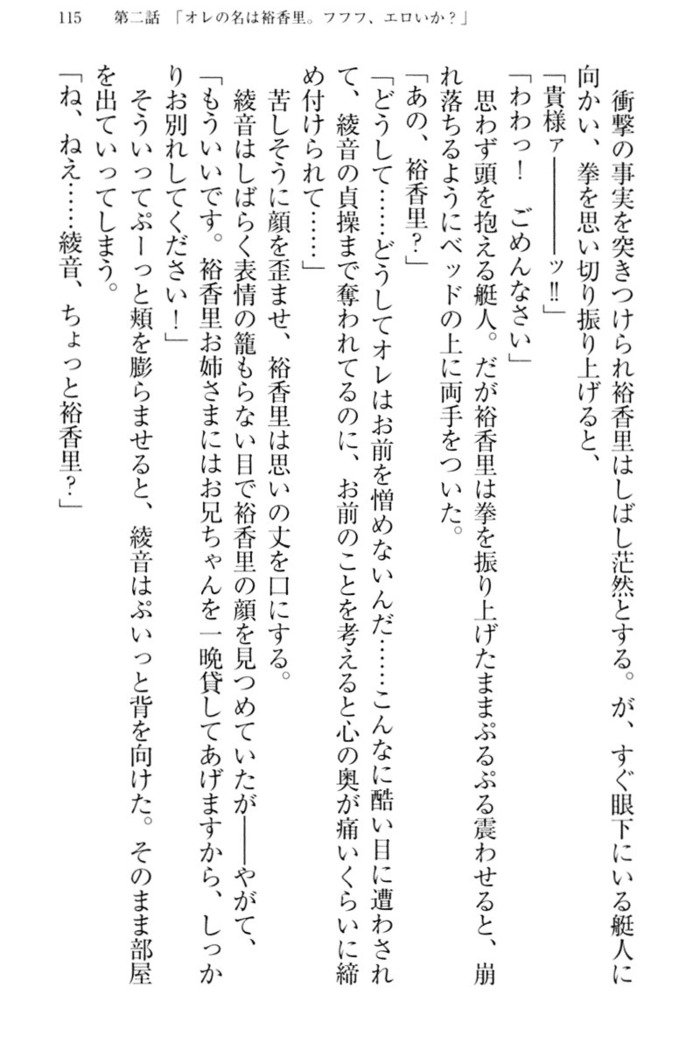 115　第二話　「オレの名は裕香里。フフフ、エロいか？」
　衝撃の事実を突きつけられ裕香里はしばし茫然とする。が、すぐ眼下にいる艇人に
向かい、拳を思い切り振り上げると、
「貴様ァ―――ッ‼」
「わわっ！　ごめんなさい」
　思わず頭を抱える艇人。だが裕香里は拳を振り上げたままぷるぷる震わせると、崩
れ落ちるようにベッドの上に両手をついた。
「あの、裕香里？」
「どうして……どうしてオレはお前を憎めないんだ……こんなに酷い目に遭わされ
て、綾音の貞操まで奪われてるのに、お前のことを考えると心の奥が痛いくらいに締
め付けられて……」
　苦しそうに顔を歪ませ、裕香里は思いの丈を口にする。
　綾音はしばらく表情の籠もらない目で裕香里の顔を見つめていたが――やがて、
「もういいです。裕香里お姉さまにはお兄ちゃんを一晩貸してあげますから、しっか
りお別れしてください！」
　そういってぷーっと頬を膨らませると、綾音はぷいっと背を向けた。そのまま部屋
を出ていってしまう。
「ね、ねえ……綾音、ちょっと裕香里？」